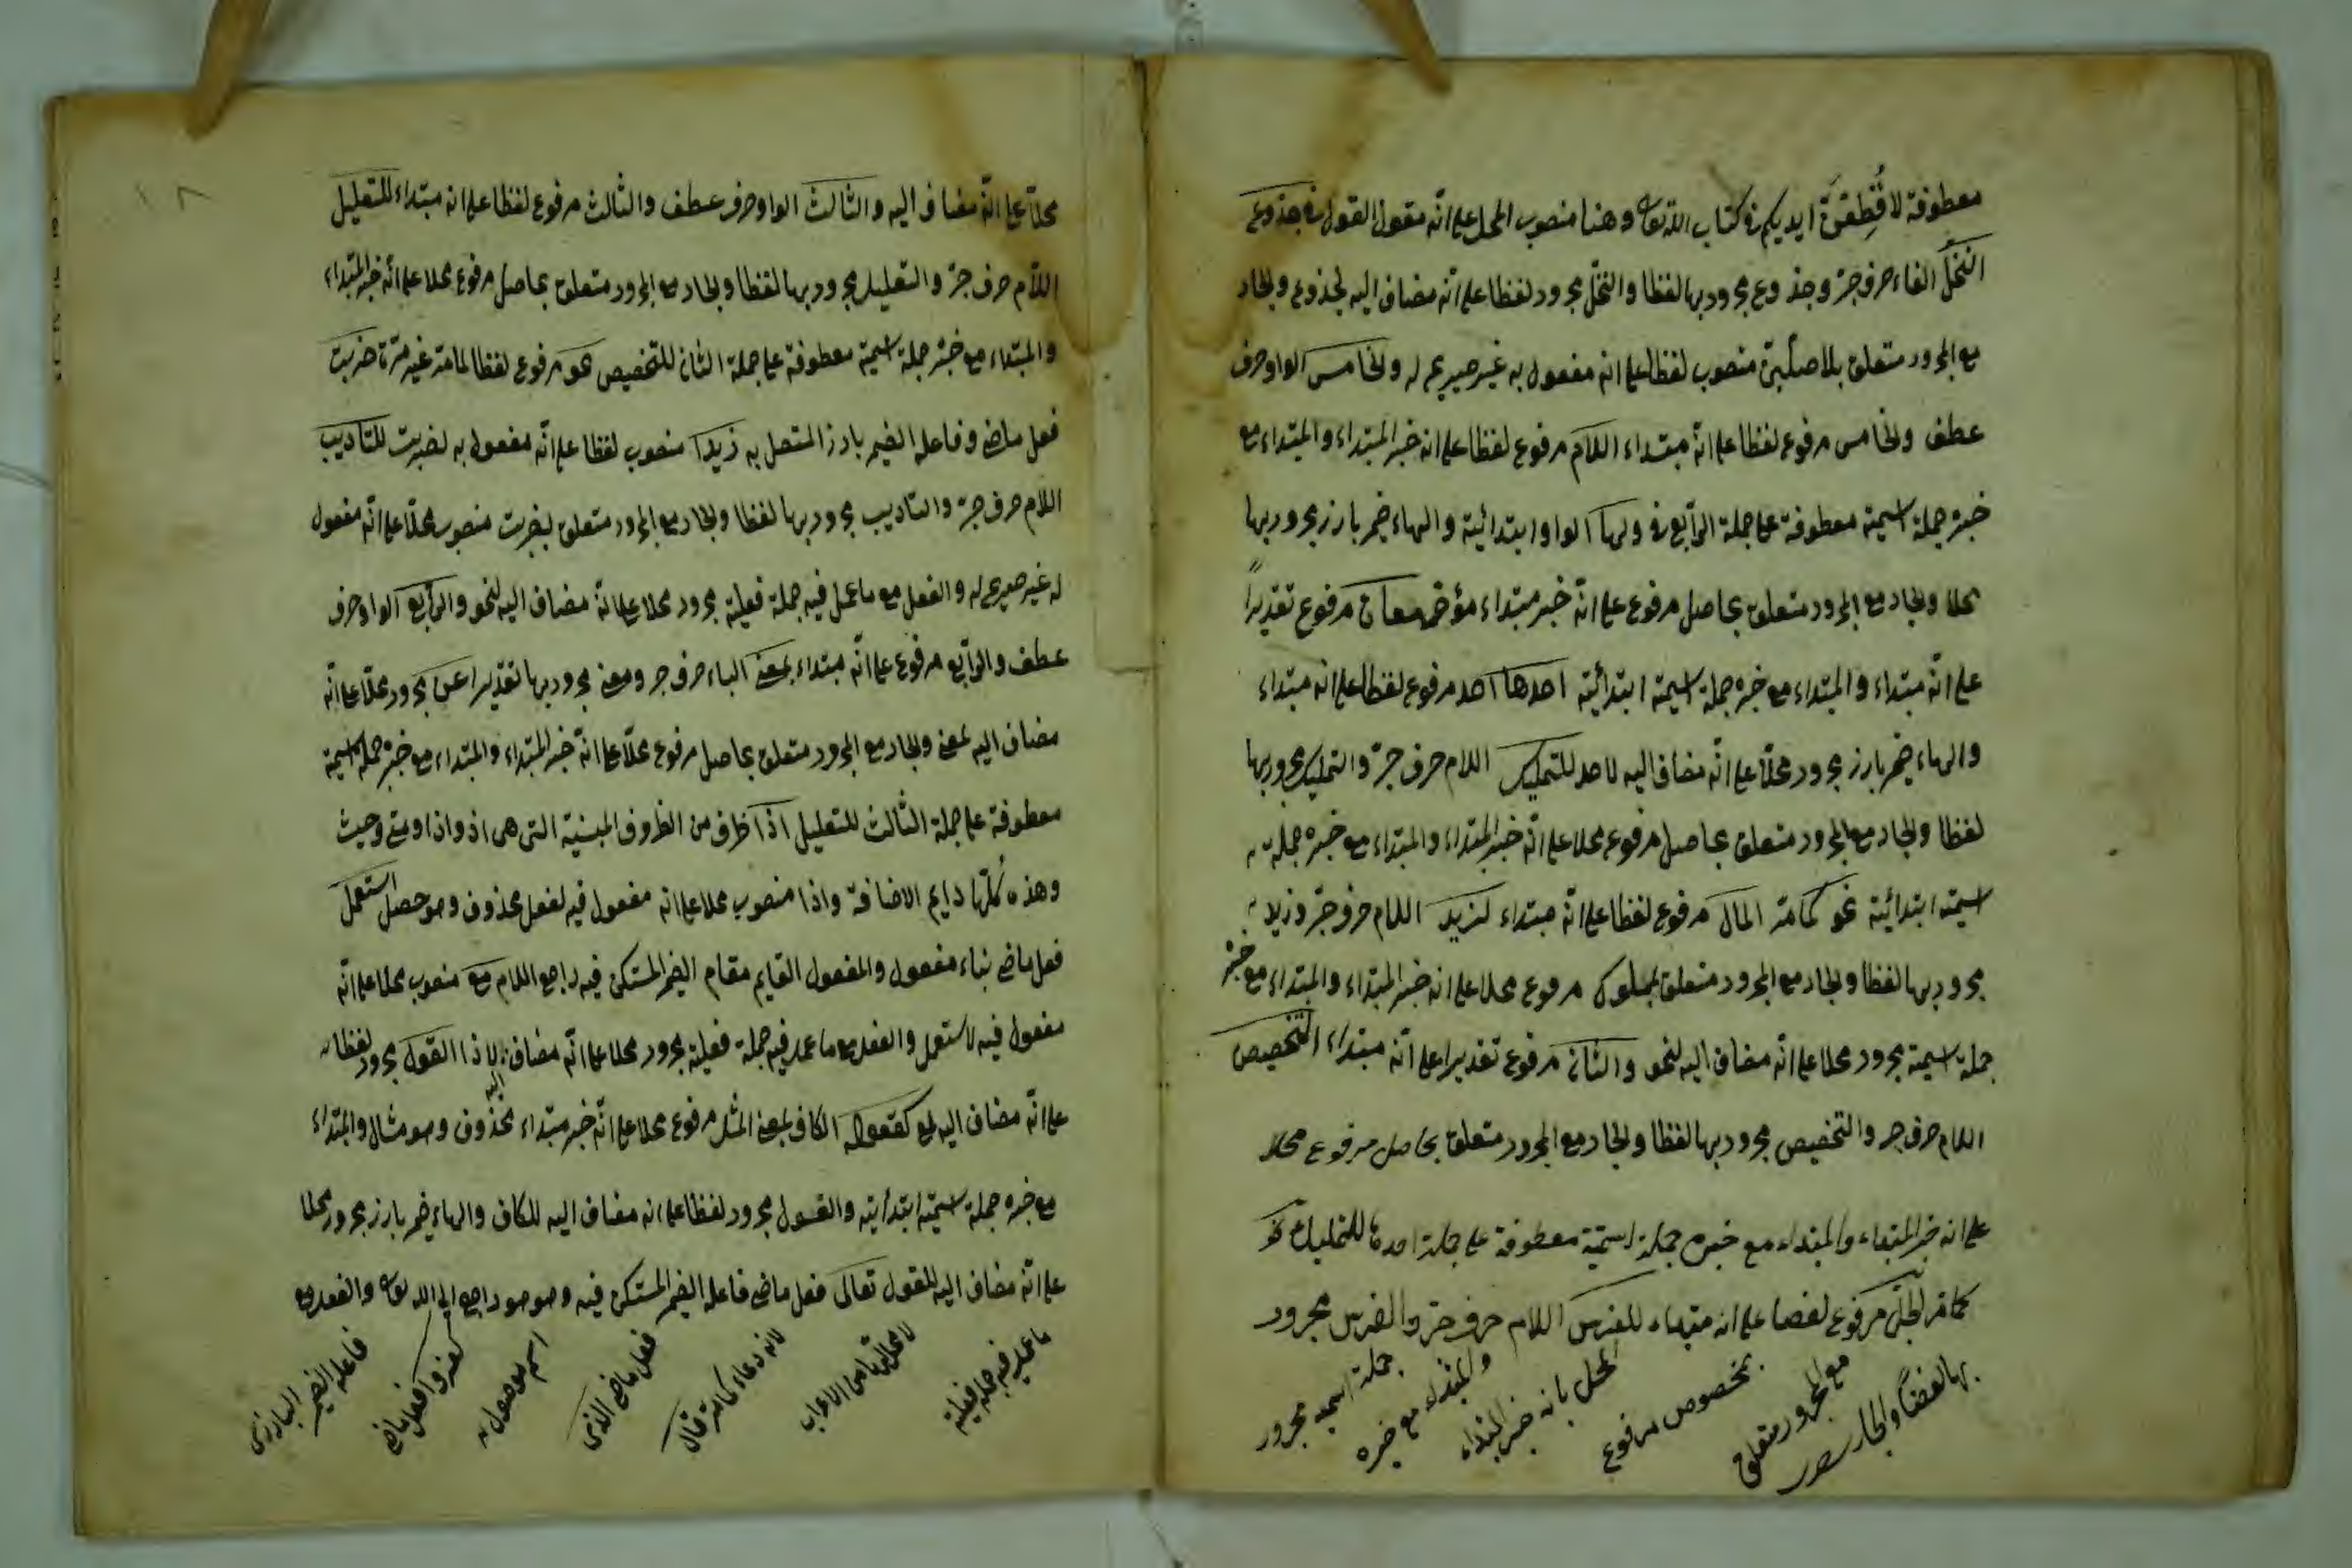 معطوفة لا قطعنّ ايديكم في كتاب الله تعالى وهنا منصوب المحل على انّه مقول القول في جذوع
النخل الفاء حرف جرّ وجذوع مجرور بها لفظا والنخل مجرور لفظا على انّه مضاف اليه لجذوع والجار
مع المجرور متعلق بلاصلبنّ منصوب لفظا على انه مفعول به غير صريح له والخامس الواو حرف
عطف والخامس مرفوع لفظا على انّه مبتداء اللام مرفوع لفظا على انه خبر المبتداء والمبتداء مع
خبره جملة اسمية معطوفة على جملة الرابع في ولها الواو ابتدائية والهاء ضمير بارز مجرور بها
محلا والجار مع المجرور متعلق بحاصل مرفوع على انّه خبر مبتداء مؤخر معان مرفوع تقديراً
على انّه مبتداء والمبتداء مع خبره جملة اسمية ابتدائية احدها احد مرفوع لفظا على انه مبتداء
والهاء ضمير بارز مجرور محلّا على انّه مضاف اليه لاحد للتمليك اللام حرف جرّ والتمليك مجرور بها
لفظا والجار مع المجرور متعلق بحاصل مرفوع محلا على انّه خبر المبتداء والمبتداء مع خبره جملة
اسمية ابتدائية نحو كامتر المال مرفوع لفظا على انّه مبتداء لزيد اللام حرف جرّ وزيد
مجرور بها لفظا والجار مع المجرور متعلق بمملوك مرفوع محلا على انه خبر المبتداء والمبتداء مع خبره
جملة اسمية مجرور محلا على انّه مضاف اليه لنحو والثاني مرفوع تقديرا على انّه مبتداء للتخصيص
اللام حرف جر والتخصيص مجرور بها لفظا والجار مع المجرور متعلق بحاصل مرفوع محلا
على انه خبر المبتداء والمبتداء مع خبره جملة اسمية معطوفة على جملة احدها للتمليك نحو
كامر الجلّ مرفوع لفضا على انه مبتداء للفرس اللام حرف جرّ والفرس مجرور
بها لفضاً والجار
مع المجرور متعلق
بمخصوص مرفوع
المحل بانه خبر المبتداء
والمبتداء مع خبره
جملة اسمية مجرور
١٨
محلّا على انّه مضاف اليه والثالث الواو حرف عطف والثالث مرفوع لفظا على انه مبتداء للتعليل
اللام حرف جرّ والتعليل مجرور بها لفظا والجار مع المجرور متعلق بحاصل مرفوع محلا على انّه خبر المبتداء
والمبتداء مع خبره جملة اسمية معطوفة على جملة الثاني للتخصيص نحو مرفوع لفظا لما مر غير مرّة ضربت
فعل ماضي وفاعله الضمير بارز المتصل به زيدا منصوب لفظا على انّه مفعول به لضربت للتاديب
اللام حرف جرّ والتاديب مجرور بها لفظا والجار مع المجرور متعلق بضربت منصوب محلّا على انّه مفعول
له غير صريح له والفعل مع ما عمل فيه جملة فعلية مجرور محلا على انّه مضاف اليه لنحو والرابع الواو حرف
عطف والرابع مرفوع على انّه مبتداء بمعنى الباء حرف جر ومعنى مجرور بها تقديرا عن مجرور محلّا على انّه
مضاف اليه لمعنى والجار مع المجرور متعلق بحاصل مرفوع محلّا على انّه خبر المبتداء والمبتداء مع خبره جملة اسمية
معطوفة على جملة الثالث للتعليل اذا ظرف من الظروف المبنية التى هى اذ واذا ومتى وحيث
وهذه كلّها دايم الاضافة واذا منصوب محلا على انه مفعول فيه لفعل محذوف وهو حصل استعمل
فعل ماضي بناء مفعول والمفعول القايم مقام الضمير المستكن فيه راجع اللام مع منصوب محلا على انّه
مفعول فيه لاستعمل والفعل مع ما عمل فيه جملة فعلية مجرور محلا على انّه مضاف اليه لاذا القول مجرور لفظا
على انّه مضاف اليه لمع كقوله الكاف بمعنى المثل مرفوع محلا على انّه خبر مبتداء محذوف وهو مثال والمبتداء
مع خبره جملة اسمية ابتدائية والقول مجرور لفظا على انه مضاف اليه للكاف والهاء ضمير بارز مجرور محلا
على انّه مضاف اليه للقول تعالى فعل ماضي فاعله الضمير المستكن فيه وهو هو راجع الى الله تعالى والفعل مع
ما عمل فيه جملة فعلية
لا محل لها من الاعراب
لانه دعاء كامر قال
فعل ماضي الذى
اسم موصول
كفروا فعل ماضي
فاعله الضمير البارز